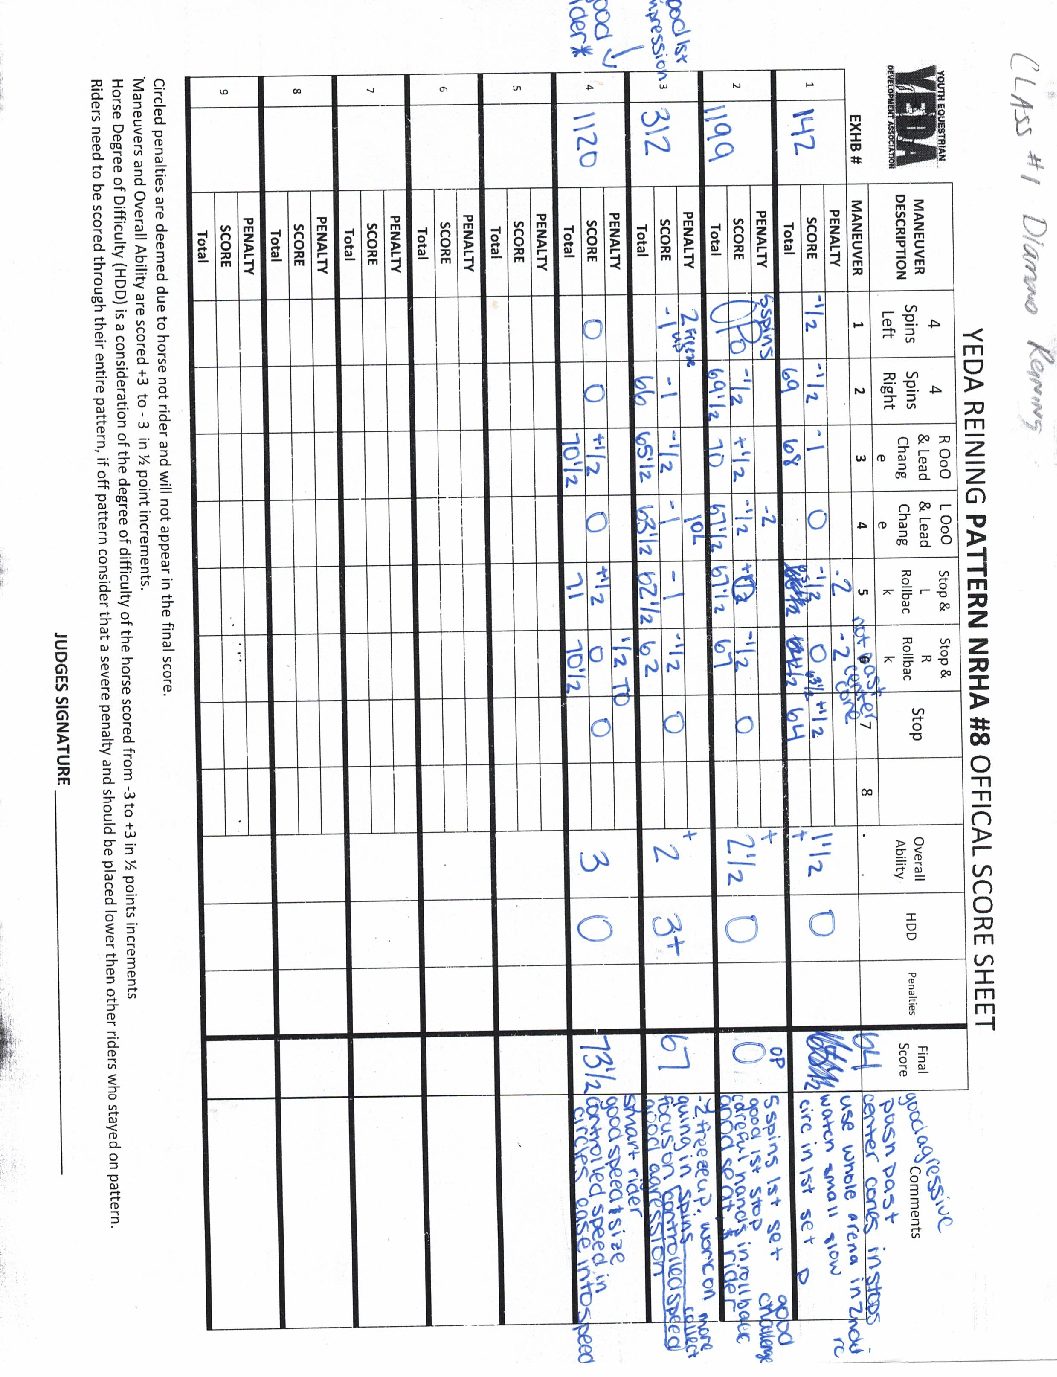 CLASS #1 Diamond Reining
YOUTH EQUESTRIAN
YEDA
DEVELOPMENT ASSOCIATION
YEDA REINING PATTERN NRHA #8 OFFICAL SCORE SHEET
MANEUVER DESCRIPTION 4 Spins Left 4 Spins Right R OoO & Lead Chang e L OoO & Lead Chang e Stop & L Rollbac k Stop & R Rollbac k Stop Overall Ability HDD Penalties Final Score Comments
EXHB # MANEUVER 1 2 3 4 5 6 7 8
not past center cone
1 142 PENALTY -2 -2
SCORE -1/2 -1/2 -1 0 -1/2 0 +1/2 +1 1/2 0 64
Total 69 68 63 1/2 64
good agressive
push past
center cones in stops
use whole arena in 2nd
watch small slow
circ in 1st set
2 1199 PENALTY 5 spins -2
SCORE OP0 -1/2 +1/2 -1/2 +1/2 -1/2 0 +2 1/2 0 OP 0
Total 69 1/2 70 67 1/2 67 1/2 67
5 spins 1st set good
good 1st stop challenge
careful hands in rollback
good seat & rider
good 1st impression
3 312 PENALTY 2 freeze up 1 OL
SCORE -1 -1 -1/2 -1 -1 -1/2 0 +2 3+ 67
Total 66 65 1/2 63 1/2 62 1/2 62
-2 freeze up, work on more
collect
focus on controlled speed
good agression
good rider*
4 1120 PENALTY 1/2 TO
SCORE 0 0 +1/2 0 +1/2 0 0 3 0 73 1/2
Total 70 1/2 71 70 1/2
smart rider
good speed & size
controlled speed in
circles ease into speed
5 PENALTY
SCORE
Total
6 PENALTY
SCORE
Total
7 PENALTY
SCORE
Total
8 PENALTY
SCORE
Total
9 PENALTY
SCORE
Total
Circled penalties are deemed due to horse not rider and will not appear in the final score.
Maneuvers and Overall Ability are scored +3 to - 3 in ½ point increments.
Horse Degree of Difficulty (HDD) is a consideration of the degree of difficulty of the horse scored from -3 to +3 in ½ points increments
Riders need to be scored through their entire pattern, if off pattern consider that a severe penalty and should be placed lower then other riders who stayed on pattern.
JUDGES SIGNATURE